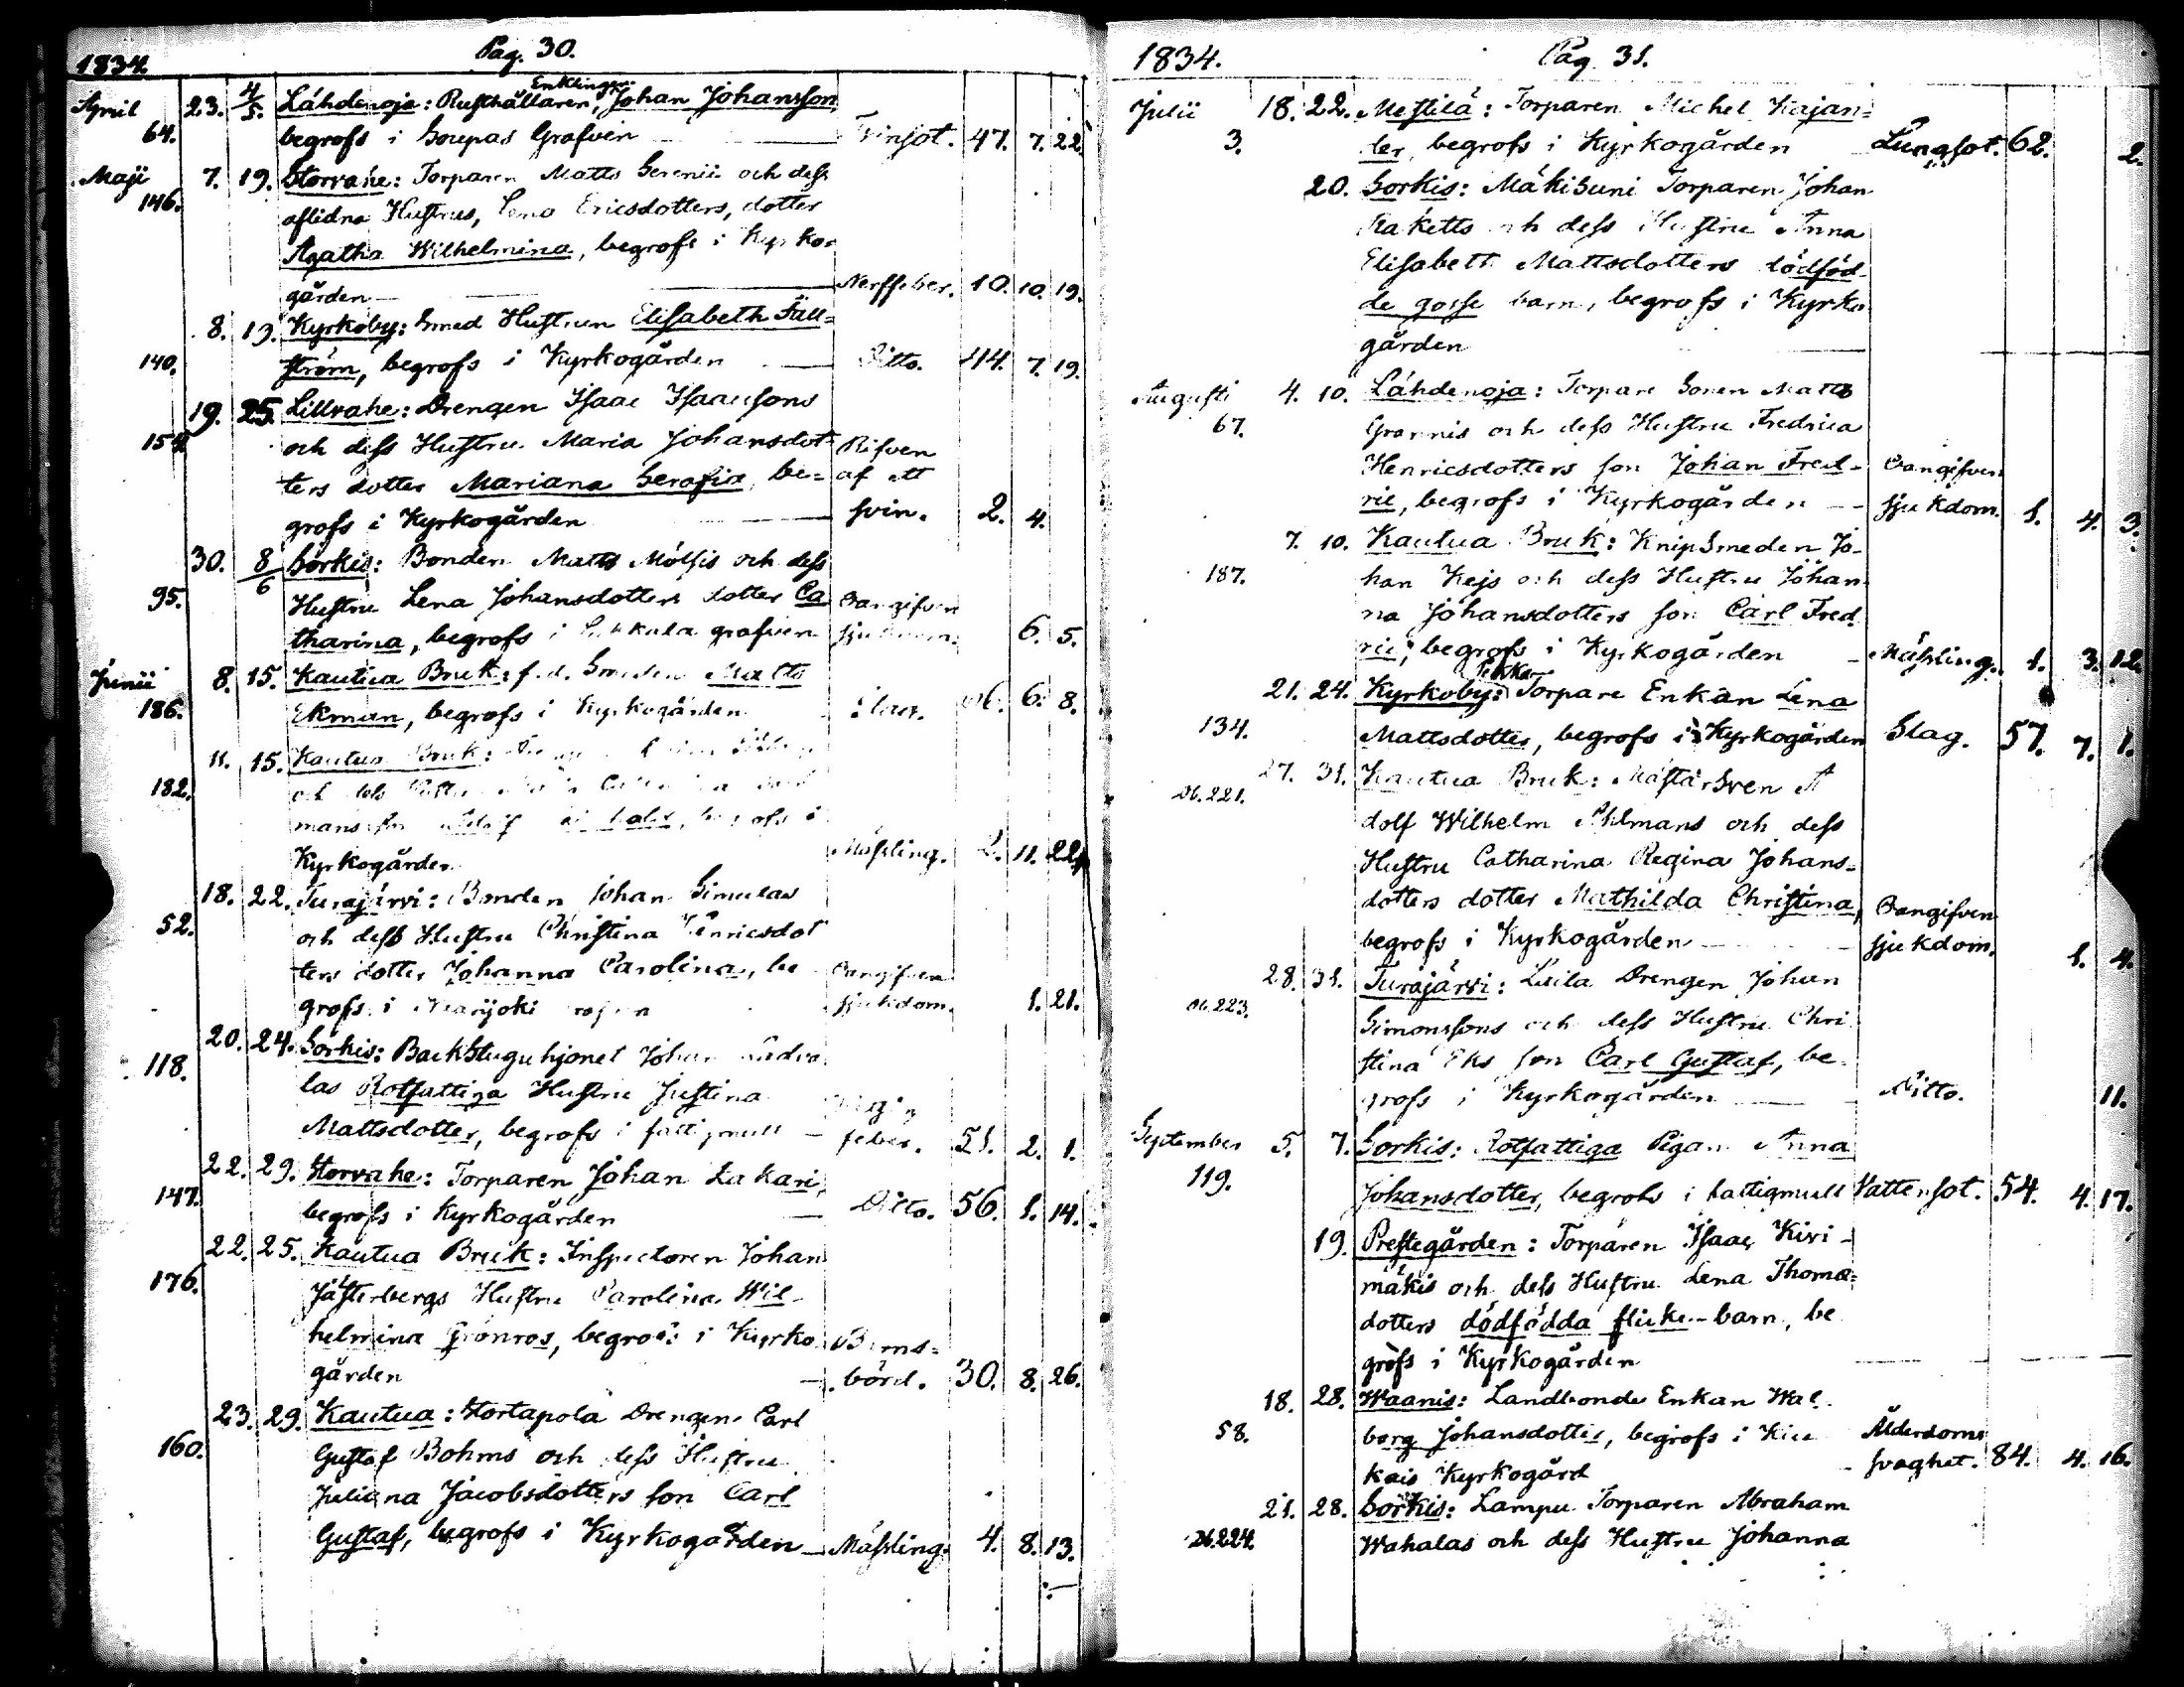 1834. Pag. 30.
Enklingen
April 23. 4/5. Lähdenoja: Rusthållaren, Johan Johansson
64. begrofs i Soupas Grafven Tvinsot. 47. 7. 22.
Maji 7. 19. Storvahe: Torparen Matts Serenii och dess
146. aflidna Hustrus, Lena Ericsdotters, dotter
Agatha Wilhelmina, begrofs i Kyrko-
gården Nerffeber. 10. 10. 19.
8. 19. Kyrkoby: Smed Hustrun Elisabeth Fäll-
140. ström, begrofs i Kyrkogården Ditto. 44. 7. 19.
19. 25. Lillvahe: Drengen Isaac Isaacsons
154. och dess Hustru Maria Johansdot-  Rifven
ters dotter Mariana Serafia, be- af ett
grofs i Kyrkogården svin. 2. 4.
30. 8/6 Sorkis: Bonden Matts Mölsis och dess
95. Hustru Lena Johansdotters dotter Ca Oangifven
tharina, begrofs i grafven sjukdom. 6. 5.
Junii 8. 15. Kautua Bruk: f.d. Smeden Matts
186. Ekman, begrofs i Kyrkogården Slag. 6. 8.
11. 15. Kautua Bruk:
182. och dess
mans son begrofs i
Kyrkogården Mässling. 2. 11. 22.
18. 22. Turajärvi: Bonden Johan Simulas
52. och dess Hustru Christina Henricsdot
ters dotter Johanna Carolina, be Oangifven
grofs i sjukdom. 1. 21.
20. 24. Sorkis: Backstuguhjonet Johan
118. las Rotfattiga Hustru Justina
Mattsdotter, begrofs i fattigmull feber. 51. 2. 1.
22. 29. Storvahe: Torparen Johan Lakari,
147. begrofs i Kyrkogården Ditto. 56. 1. 14.
22. 25. Kautua Bruk: Inspectoren Johan
176. Jäfterbergs Hustru Carolina Wil-
helmina Grönros, begrofs i Kyrko Barns-
gården börd. 30. 8. 26.
23. 29. Kautua: Stortapola Drengen Carl
160. Gustaf Bohms och dess Hustru
Juliana Jacobsdotters son Carl
Gustaf, begrofs i Kyrkogården Mässling. 4. 8. 13.
1834. Pag. 31.
Julii 18. 22. Mestilä: Torparen Michel Kajan-
3. ler, begrofs i Kyrkogården Lungsot. 62. 2.
20. Sorkis: Mäkisuni Torparen Johan
Raketts och dess Hustru Anna
Elisabeth Mattsdotters dödföd-
de gosse barn, begrofs i Kyrko
gården
Augusti 4. 10. Lähdenoja: Torpare Sonen Matts
67. Grannis och dess Hustru Fredrica
Henricsdotters son Johan Fred- Oangifven
ric, begrofs i Kyrkogården sjukdom. 1. 4. 3.
7. 10. Kautua Bruk: Knipsmeden Jo-
187. han Kejs och dess Hustru Johan
na Johansdotters son Carl Fred
ric, begrofs i Kyrkogården Mässling. 1. 3. 12.
21. 24. Kyrkoby: Torpare Enkan Lena
134. Mattsdotter, begrofs i Kyrkogården Slag. 57. 7. 1.
27. 31. Kautua Bruk: Mästarsven A
Ob.221. dolf Wilhelm Ahlmans och dess
Hustru Catharina Regina Johans-
dotters dotter Mathilda Christina, Oangifven
begrofs i Kyrkogården sjukdom. 1. 4.
28. 31. Turajärvi: Luila Drengen Johan
Ob.223. Simonssons och dess Hustru Chri
stina Eks son Carl Gustaf, be-
grofs i Kyrkogården Ditto. 11.
September 5. 7. Sorkis: Rotfattiga Pigan Anna
119. Johansdotter, begrofs i fattigmull Vattensot. 54. 4. 17.
19. Prestegården: Torparen Isaac Kivi-
mäkis och dess Hustru Lena Thomæ-
dotters dödfödda flicke-barn, be
grofs i Kyrkogården
18. 28. Waanis: Landbonde Enkan Wal
58. borg Johansdotter, begrofs i Kiu Ålderdoms
kais Kyrkogård svaghet. 84. 4. 16.
21. 28. Sorkis: Lampu Torparen Abraham
Ob.224. Wahalas och dess Hustru Johanna